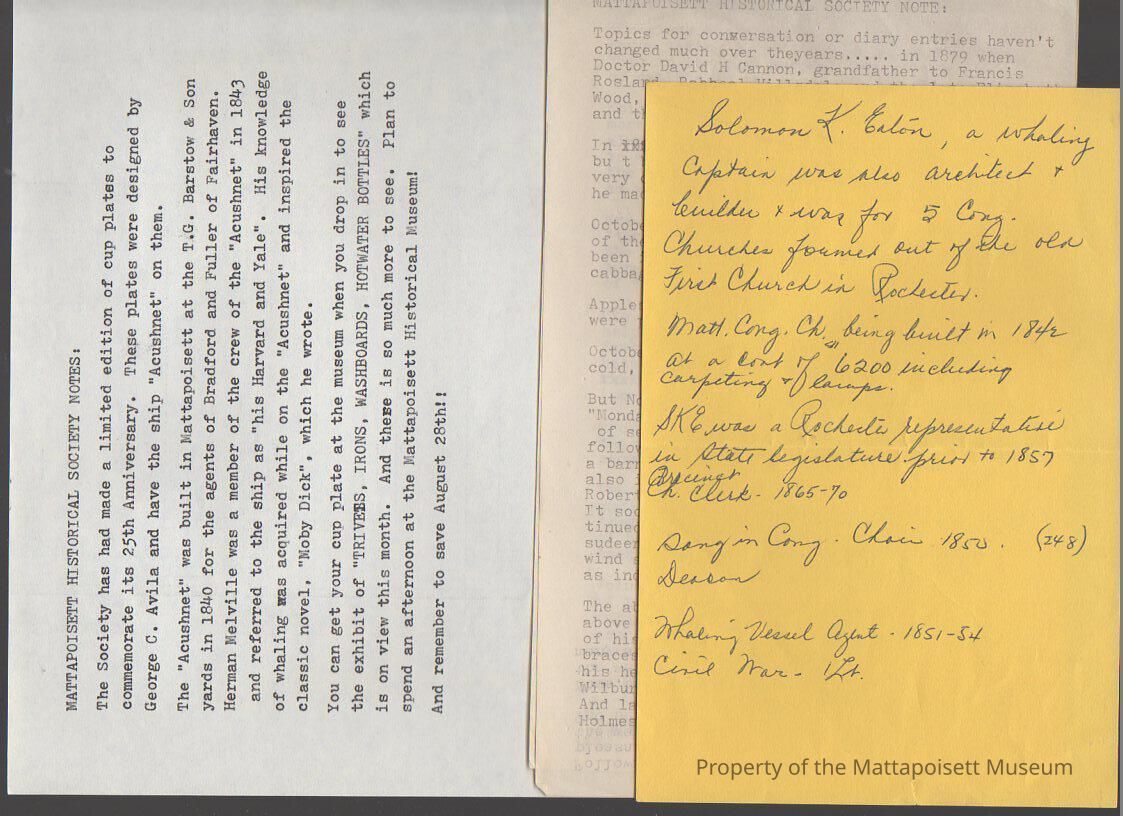 MATTAPOISETT HISTORICAL SOCIETY NOTES:
The Society has had made a limited edition of cup plates to
commemorate its 25th Anniversary. These plates were designed by
George C. Avila and have the ship "Acushnet" on them.
The "Acushnet" was built in Mattapoisett at the T.G. Barstow & Son
yards in 1840 for the agents of Bradford and Fuller of Fairhaven.
Herman Melville was a member of the crew of the "Acushnet" in 1843
and referred to the ship as "his Harvard and Yale". His knowledge
of whaling was acquired while on the "Acushnet" and inspired the
classic novel, "Moby Dick", which he wrote.
You can get your cup plate at the museum when you drop in to see
the exhibit of "TRIVETS, IRONS, WASHBOARDS, HOTWATER BOTTLES" which
is on view this month. And there is so much more to see. Plan to
spend an afternoon at the Mattapoisett Historical Museum!
And remember to save August 28th!!
MATTAPOISETT HISTORICAL SOCIETY NOTE:
Topics for conversation or diary entries haven't
changed much over theyears..... in 1879 when
Doctor David H Cannon, grandfather to Francis
Rosland
Wood,
and th
In
but
very
he ma
Octobe
of the
been
cabba
Apple
were
Octobe
cold,
But No
"Monda
of se
follow
a barr
also
Robert
It soo
tinued
sudeen
wind s
as in
The ab
above
of his
braces
his he
Wilbur
And la
Holmes
Solomon K. Eaton, a whaling
Captain was also architect +
builder + was for 5 Cong.
Churches formed out of the old
First Church in Rochester.
Matt. Cong. Ch. being built in 1842
at a cost of 6200 including
carpeting + lamps.
SKE was a Rochester representative
in State legislature prior to 1857
Precinct
Ch. Clerk - 1865-70
Sang in Cong. Choir 1850. (248)
Deacon
Whaling Vessel Agent - 1851-54
Civil War - 1Lt.
Property of the Mattapoisett Museum